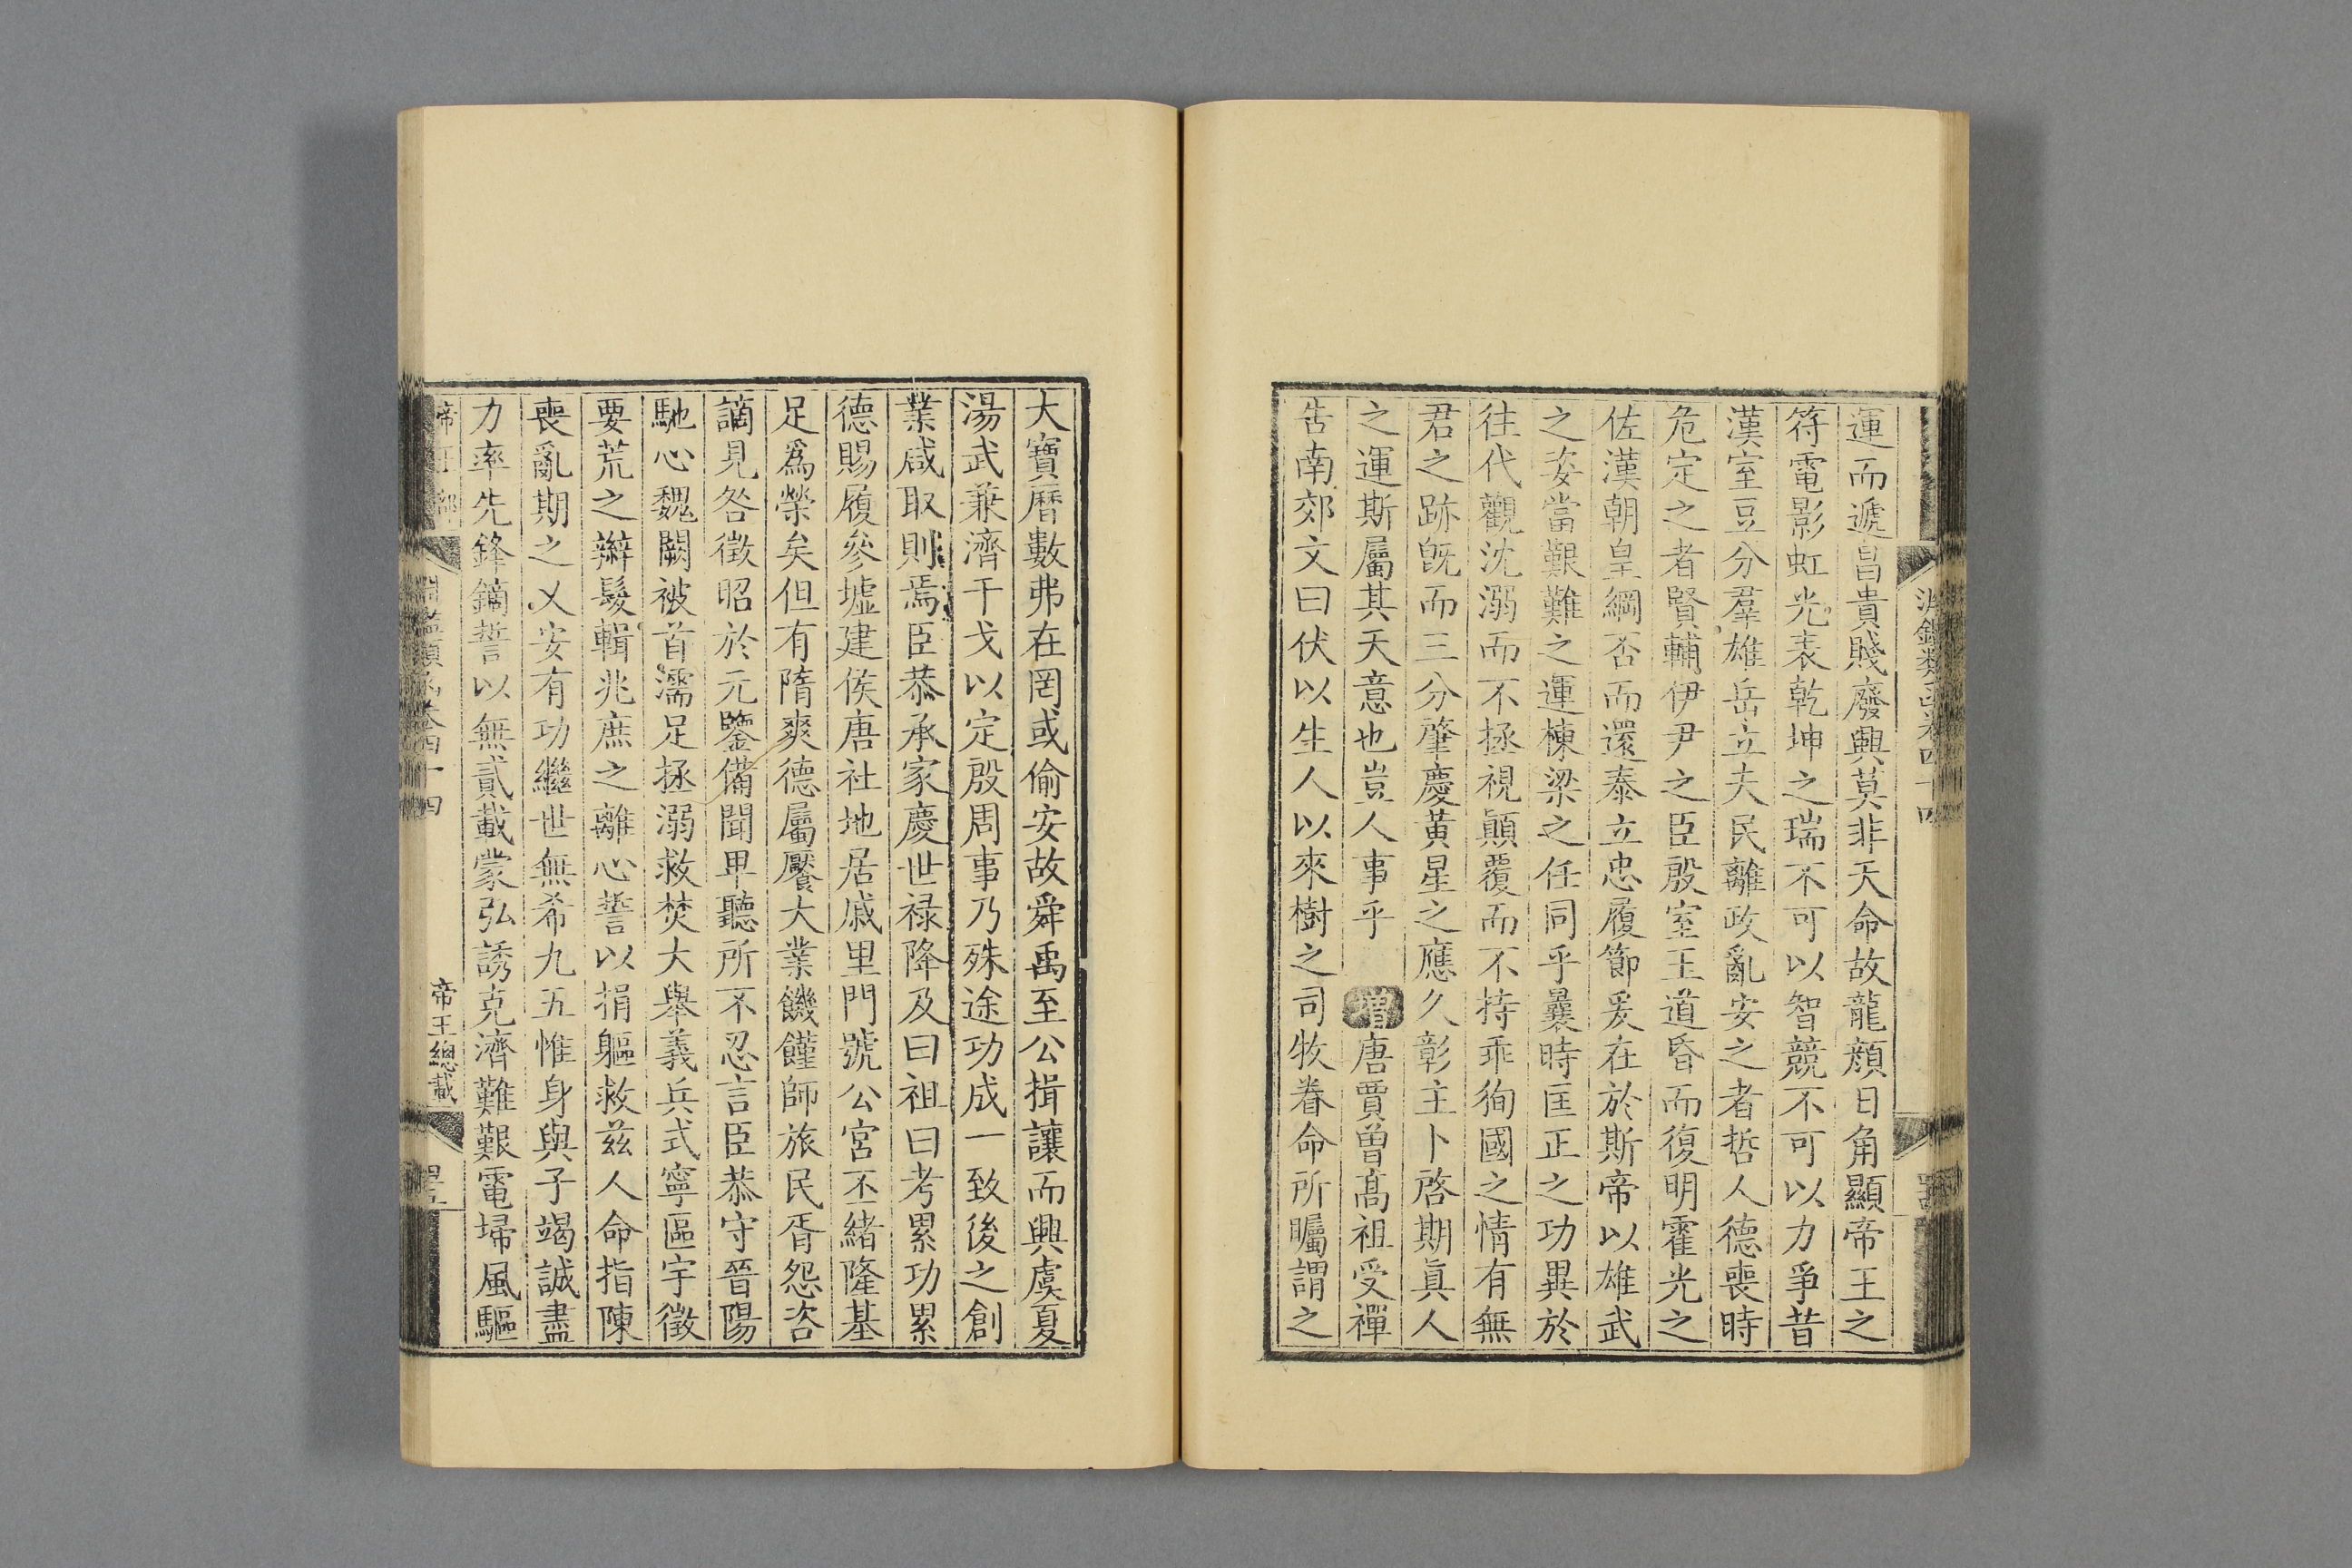 淵鑑類函卷四十四
運而遞昌貴賤廢興莫非天命故龍顏日角顯帝王之
符電影虹光表乾坤之瑞不可以智競不可以力爭昔
漢室豆分羣雄岳立夫民離政亂安之者哲人德喪時
危定之者賢輔伊尹之臣殷室王道昏而復明霍光之
佐漢朝皇綱否而還泰立忠履節爰在於斯帝以雄武
之姿當艱難之運棟梁之任同乎曩時匡正之功異於
往代觀沈溺而不拯視顚覆而不持乖徇國之情有無
君之跡旣而三分肇慶黃星之應久彰主卜啓期眞人
之運斯屬其天意也豈人事乎 增唐賈曾高祖受禪
告南郊文曰伏以生人以來樹之司牧眷命所矚謂之
大寶曆數弗在罔或偷安故舜禹至公揖讓而興虞夏
湯武兼濟干戈以定殷周事乃殊途功成一致後之創
業咸取則焉臣恭承家慶世禄降及曰祖曰考累功累
德賜履參墟建侯唐社地居戚里門號公宮丕緒隆基
足爲榮矣但有隋爽德屬饜大業饑饉師旅民胥怨咨
謫見咎徵昭於元鑒備聞卑聽所不忍言臣恭守晉陽
馳心魏闕被首濡足拯溺救焚大舉義兵式寧區宇徵
要荒之辮髮輯兆庶之離心誓以捐軀救兹人命指陳
喪亂期之乂安有功繼世無希九五惟身與子竭誠盡
力率先鋒鏑誓以無貳載蒙弘誘克濟難艱電埽風驅
帝王部 淵鑑類函卷四十四 帝王總載